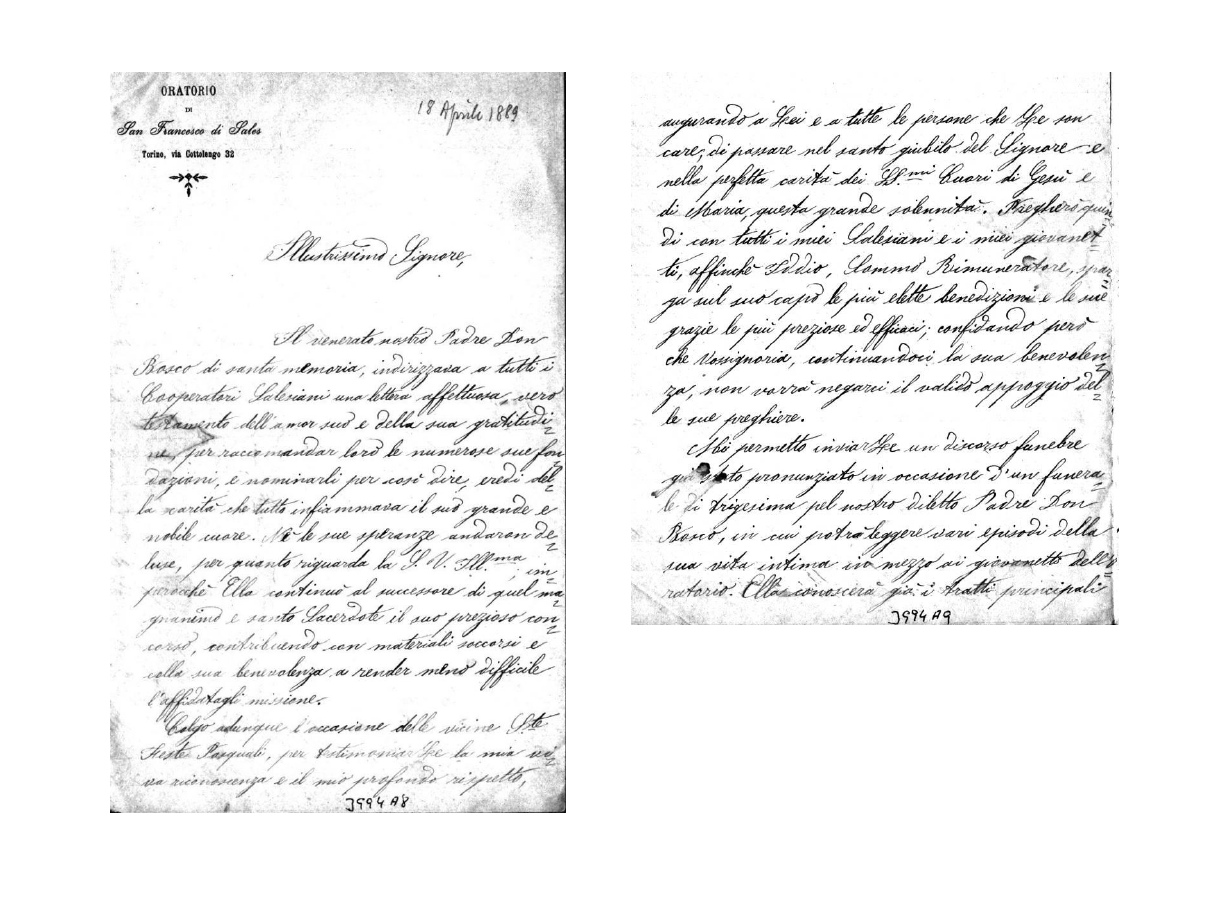 ORATORIO
DI
San Francesco di Sales
Torino, via Cottolengo 32
18 Aprile 1889
Illustrissimo Signore,
Il venerato nostro Padre Don
Bosco di santa memoria, indirizzava a tutti i
Cooperatori Salesiani una lettera affettuosa, vero
testamento dell'amor suo e della sua gratitudi=
ne, per raccomandar loro le numerose sue fon
dazioni, e nominarli per così dire, eredi del=
la carità che tutto infiammava il suo grande e
nobile cuore. Nè le sue speranze andaron de=
luse, per quanto riguarda la S. V. Ill.ma, im=
perocchè Ella continuò al successore di quel ma=
gnanimo e santo Sacerdote il suo prezioso con=
corso, contribuendo con materiali soccorsi e
colla sua benevolenza a render meno difficile
l'affidatagli missione.
Colgo adunque l'occasione delle vicine Ste
Feste Pasquali, per testimoniarLe la mia vi=
va riconoscenza e il mio profondo rispetto,
J994A8
augurando a Lei e a tutte le persone che Le son
care, di passare nel santo giubilo del Signore e
nella perfetta carità dei SS.mi Cuori di Gesù e
di Maria, questa grande solennità. Pregherò quin
di con tutti i miei Salesiani e i miei giovanet=
ti, affinchè Iddio, Sommo Rimuneratore, spar=
ga sul suo capo le più elette benedizioni e le sue
grazie le più preziose ed efficaci; confidando però
che Vossignoria, continuandoci la sua benevolen=
za, non vorrà negarci il valido appoggio del=
le sue preghiere.
Mi permetto inviarLe un discorso funebre
pronunziato in occasione d'un funera=
le di trigesima pel nostro diletto Padre Don
Bosco, in cui potrà leggere vari episodi della
sua vita intima in mezzo ai giovanetti dell'O=
ratorio. Ella conoscerà già i tratti principali
J994A9